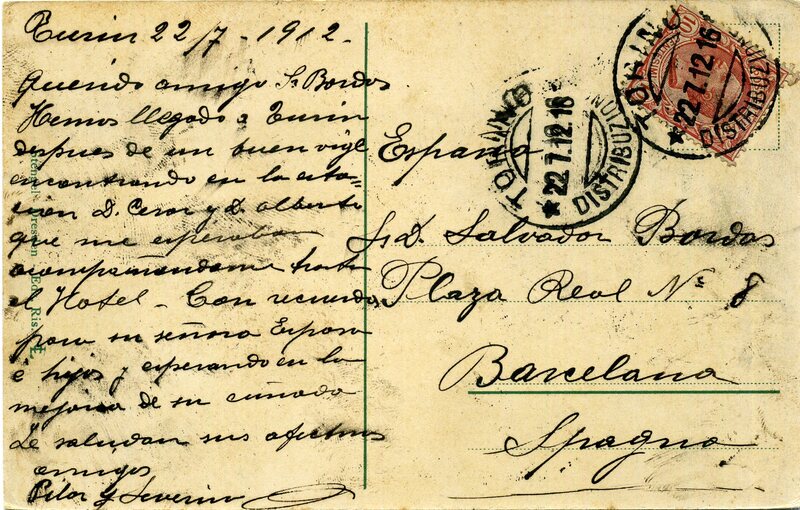 Turin 22/7 - 1912 -
Querido amigo Sr Bordas
Hemos llegado a Turin
despues de un buen viaje
encontrando en la esta-
cion D. Cesar y D. Alberto
que me esperaban
acompañandome hasta
el Hotel - Con recuerdos
para su señora Esposa
e hijos y esperando en la
mejoria de su cuñada
Le saludan sus afectmos
amigos
Pilar y Severino
España
Sr. D. Salvador Bordas
Plaza Real Nº 8
Barcelona
Spagna
TORINO
22.7.12.16
DISTRIBUZIONE
TORINO
22.7.12.16
DISTRIBUZIONE
10